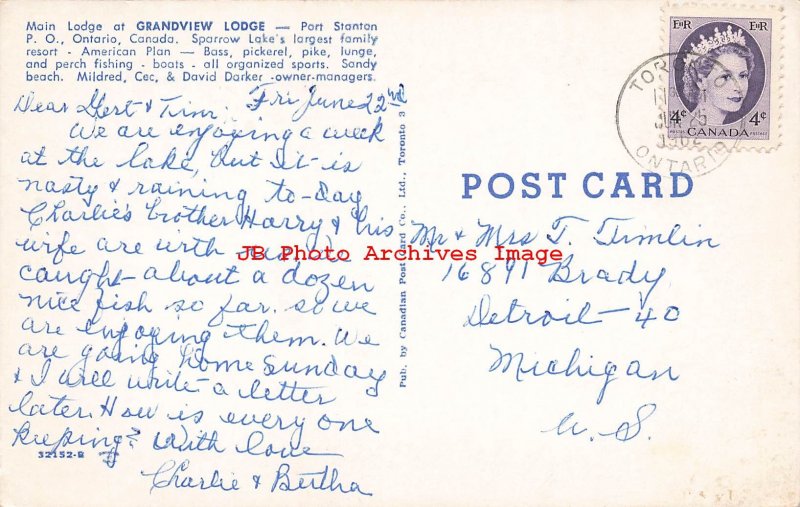 Main Lodge at GRANDVIEW LODGE — Port Stanton
P. O., Ontario, Canada. Sparrow Lake's largest family
resort - American Plan — Bass, pickerel, pike, lunge,
and perch fishing - boats - all organized sports. Sandy
beach. Mildred, Cec, & David Darker -owner-managers.
Fri June 22nd
Dear Gert & Tim.
We are enjoying a week
at the lake, but it is
nasty & raining to-day
Charlie's brother Harry & his
wife are with us.
caught about a dozen
nice fish so far. so we
are enjoying them. We
are going home Sunday
& I will write a letter
later. How is every one
keeping? With love
Charlie & Bertha
32152-B
Pub. by Canadian Post Card Co., Ltd., Toronto 3
POST CARD
Mr & Mrs T. Timlin
16891 Brady
Detroit - 40
Michigan
U. S.
EIIR EIIR
4¢ 4¢
POSTES CANADA POSTAGE
TORONTO
ONTARIO
JB Photo Archives Image